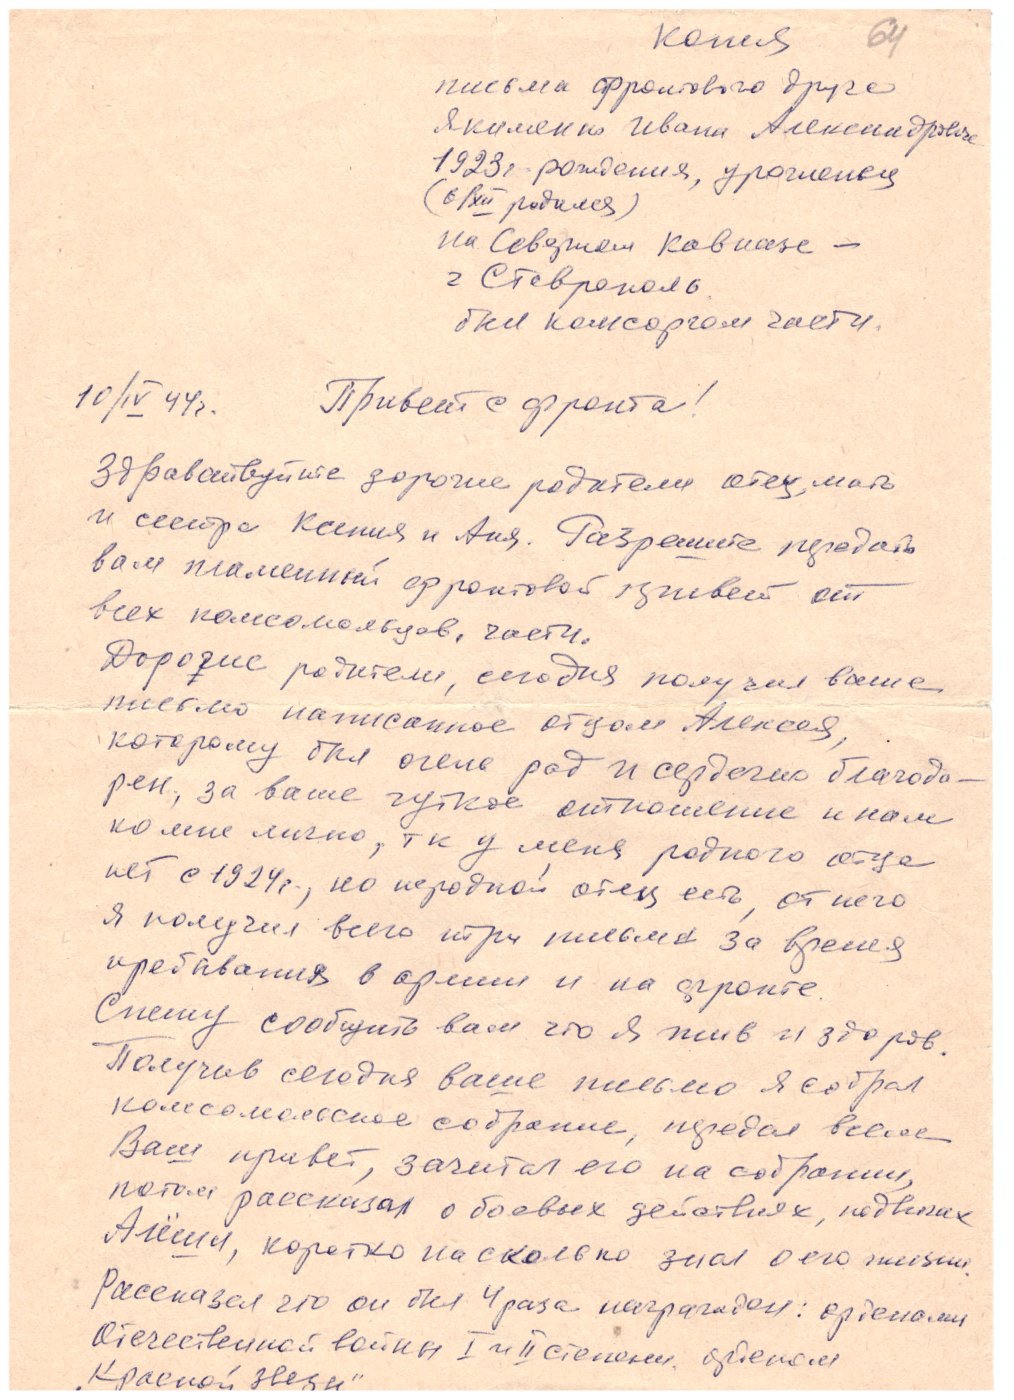 копия 64
письма фронтового друга
Якименко Ивана Александровича
1923г. рождения, уроженец
(в XII родился)
на Северном Кавказе –
г Ставрополь
был комсоргом части.
10/IV 44г. Привет с фронта!
Здравствуйте дорогие родители отец, мать
и сестра Ксения и Аня. Разрешите передать
вам пламенный фронтовой привет от
всех комсомольцев, части.
Дорогие родители, сегодня получил ваше
письмо написанное отцом Алексея,
которому был очень рад и сердечно благода–
рен, за ваше чуткое отношение к нам
ко мне лично, т к у меня родного отца
нет с 1924г., но неродной отец есть, от него
я получил всего три письма за время
пребывания в армии и на фронте.
Спешу сообщить вам что я жив и здоров.
Получив сегодня ваше письмо я собрал
комсомольское собрание, передал всем
Ваш привет, зачитал его на собрании,
потом рассказал о боевых действиях, подвигах
Алёши, коротко насколько знал о его жизни.
Рассказал что он был 4 раза награжден: орденами
Отечественной войны I и II степени, орденом
„Красной звезды"